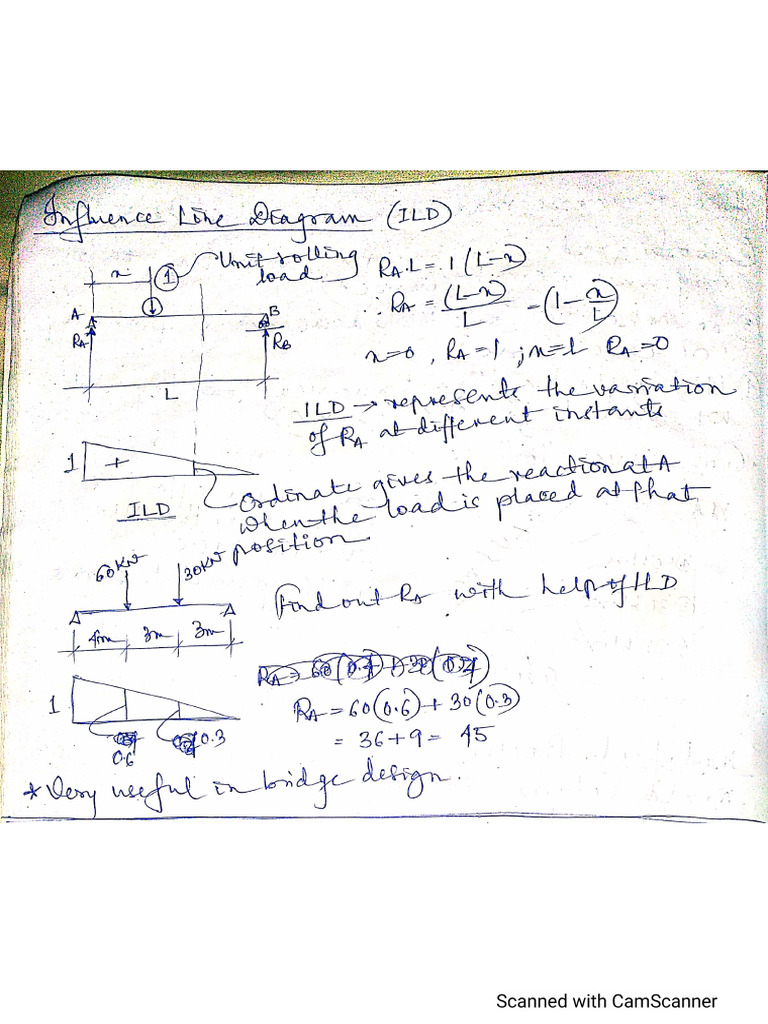 Influence Line Diagram (ILD)
x 1 Unit rolling load
A B
RA RB
L
RA.L = 1(L-x)
∴ RA = (L-x)/L = (1-x/L)
x=0, RA=1 ; x=L RA=0
ILD → represents the variation
of RA at different instants
1 +
ILD
Ordinate gives the reaction at A
when the load is placed at that
position.
60KN 30KN
4m 3m 3m
Find out RA with help of ILD
1
0.6 0.3
RA = 60(0.6) + 30(0.3)
= 36+9 = 45
* Very useful in bridge design.
Scanned with CamScanner